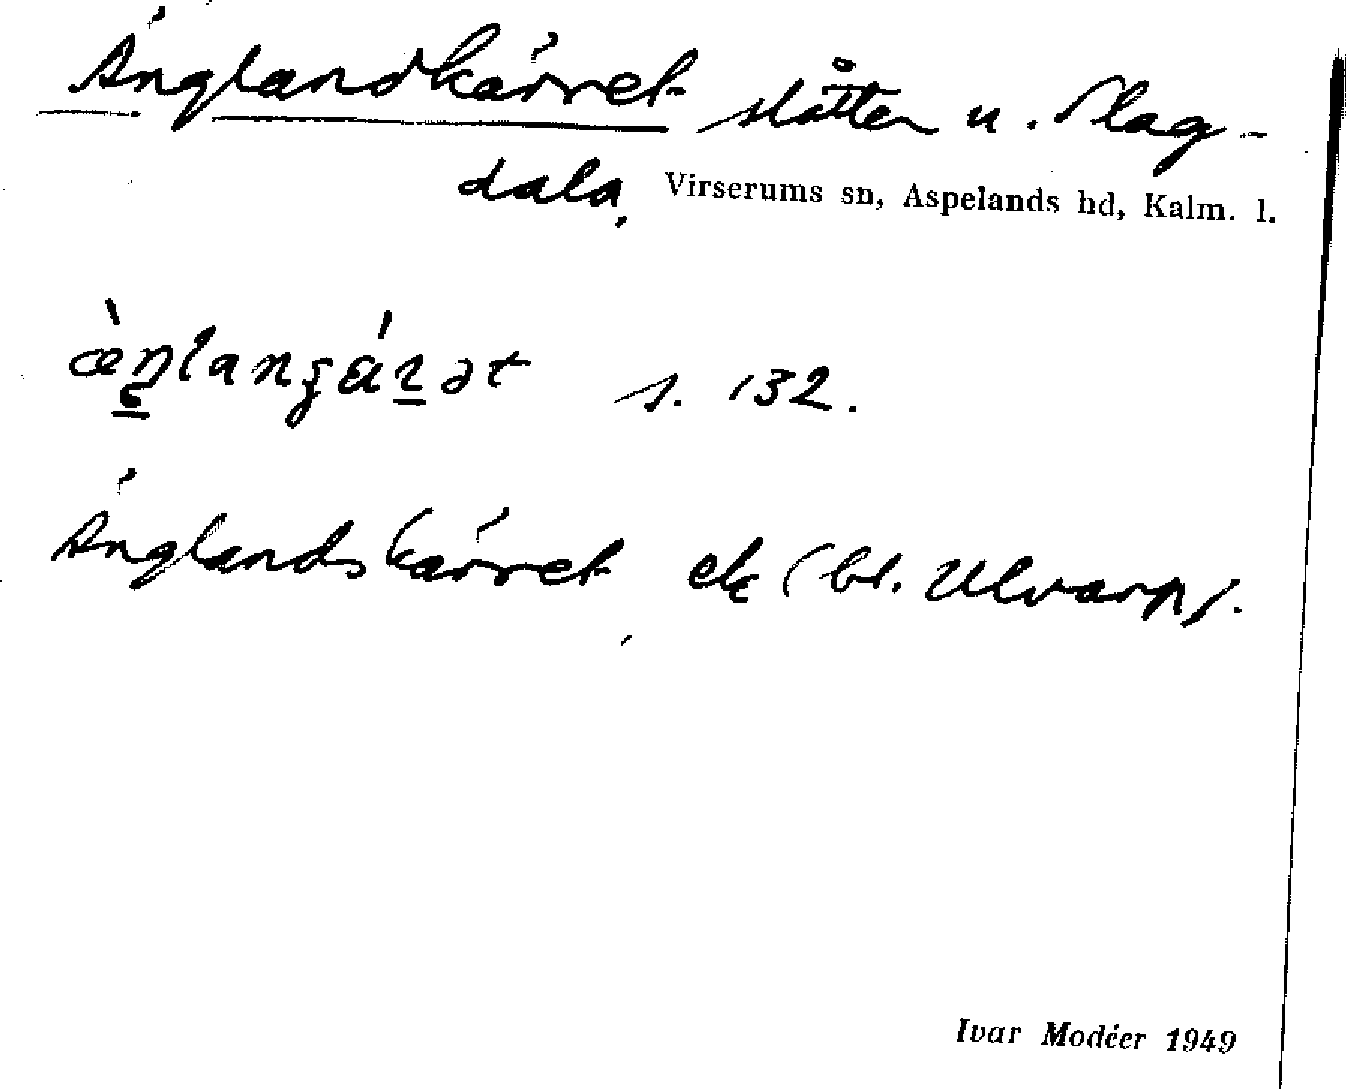 Änglandkärret slåtter u. Slag-
dala, Virserums sn, Aspelands hd, Kalm. l.
s. 132.
Änglandskärret ek (bl. Ulvarp).
Ivar Modéer 1949